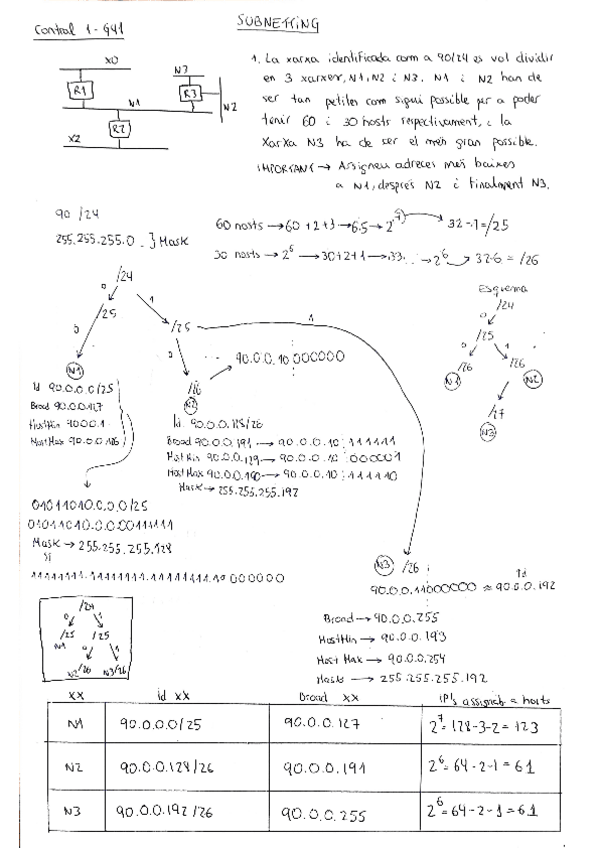 Control 1 - G41
SUBNETTING
X0
R1
N3
R3
N1
N2
R2
X2
1. La xarxa identificada com a 90/24 es vol dividir
en 3 xarxes, N1, N2 i N3. N1 i N2 han de
ser tan petites com sigui possible per a poder
tenir 60 i 30 hosts respectivament, i la
xarxa N3 ha de ser el més gran possible.
IMPORTANT → Assigneu adreces més baixes
a N1, després N2 i finalment N3.
90 /24
255.255.255.0 } Mask
60 hosts → 60+2+3 → 65 → 2^7 → 32-7=/25
30 hosts → 2^6 → 30+2+1 → 33 → 2^6 → 32-6 = /26
/24
0
1
/25
/25
0
0
1
N1
/26
N2
90.0.0.10 000000
Id 90.0.0.0/25
Broad 90.0.0.127
HostMin 90.0.0.1
HostMax 90.0.0.126
Id 90.0.0.128/26
Broad 90.0.0.191 → 90.0.0.10 111111
HostMin 90.0.0.129 → 90.0.0.10 000001
HostMax 90.0.0.190 → 90.0.0.10 111110
Mask → 255.255.255.192
Esquema
/24
0
/25
0
1
/26
/26
N1
N2
/27
N3
01011010.0.0.0/25
01011010.0.0.00111111
Mask → 255.255.255.128
11111111.11111111.11111111.10 000000
N3 /26
Id
90.0.0.11000000 ≈ 90.0.0.192
Broad → 90.0.0.255
HostMin → 90.0.0.193
Host Max → 90.0.0.254
Mask → 255.255.255.192
/24
0
1
/25 /25
N1
0
1
N2/26 N3/26
XX
id XX
Broad XX
IP's assignab = hosts
N1
90.0.0.0/25
90.0.0.127
2^7 = 128-3-2 = 123
N2
90.0.0.128/26
90.0.0.191
2^6 = 64-2-1 = 61
N3
90.0.0.192/26
90.0.0.255
2^6 = 64-2-1 = 61